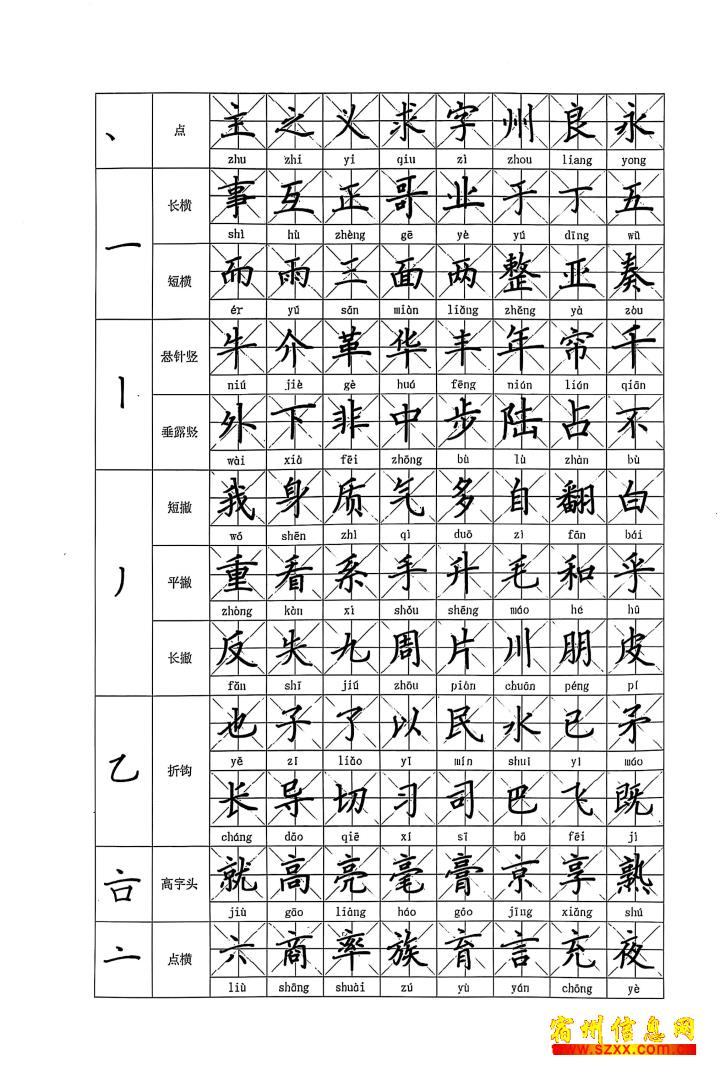 丶 点 主 之 义 求 字 州 良 永
zhu zhi yi qiu zì zhou liang yong
一 长横 事 互 正 哥 业 于 丁 五
shì hù zhèng gē yè yú dīng wǔ
短横 而 雨 三 面 两 整 亚 奏
ér yǔ sān miàn liǎng zhěng yà zòu
丨 悬针竖 牛 介 革 华 丰 年 帘 千
niú jiè gé huá fēng nián lián qiān
垂露竖 外 下 非 中 步 陆 占 不
wài xià fēi zhōng bù lù zhàn bù
丿 短撇 我 身 质 气 多 自 翻 白
wǒ shēn zhì qì duō zì fān bái
平撇 重 看 系 手 升 毛 和 乎
zhòng kàn xì shǒu shēng máo hé hū
长撇 反 失 九 周 片 川 朋 皮
fǎn shī jiǔ zhōu piàn chuān péng pí
乙 折钩 也 子 了 以 民 水 已 矛
yě zǐ liǎo yǐ mín shuǐ yǐ máo
长 导 切 习 司 巴 飞 既
cháng dǎo qiē xí sī bā fēi jì
高字头 就 高 亮 毫 膏 京 享 熟
jiù gāo liàng háo gāo jīng xiǎng shú
亠 点横 六 商 率 族 育 言 充 夜
liù shāng shuài zú yù yán chōng yè
宿州信息网
www.szxx.com.cn